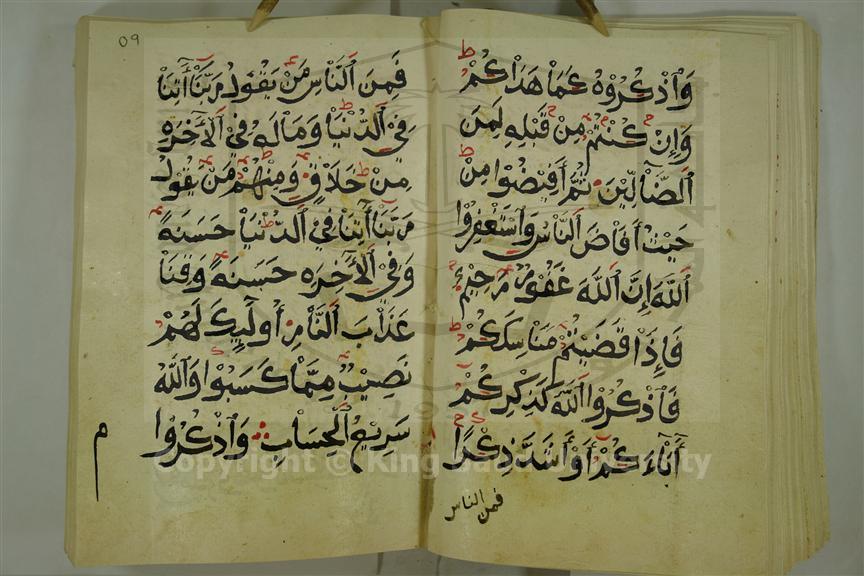 وَٱذْكُرُوهُ كَمَا هَدَاكُمْ
وَإِنْ كُنْتُمْ مِنْ قَبْلِهِ لَمِنَ
ٱلضَّآلِّينَ ثُمَّ أَفِيضُوا مِنْ
حَيْثُ أَفَاضَ ٱلنَّاسُ وَٱسْتَغْفِرُوا
ٱللَّهَ إِنَّ ٱللَّهَ غَفُورٌ رَحِيمٌ
فَإِذَا قَضَيْتُمْ مَنَاسِكَكُمْ
فَٱذْكُرُوا ٱللَّهَ كَذِكْرِكُمْ
آبَآءَكُمْ أَوْ أَشَدَّ ذِكْرًا
فمن الناس
09
فَمِنَ ٱلنَّاسِ مَنْ يَقُولُ رَبَّنَآ أٰتِنَا
فِي ٱلدُّنْيَا وَمَا لَهُ فِي ٱلْأٓخِرَةِ
مِنْ خَلَاقٍ وَمِنْهُمْ مَنْ يَقُولُ
رَبَّنَآ أٰتِنَا فِي ٱلدُّنْيَا حَسَنَةً
وَفِي ٱلْأٓخِرَةِ حَسَنَةً وَقِنَا
عَذَابَ ٱلنَّارِ أُولٰٓئِكَ لَهُمْ
نَصِيبٌ مِمَّا كَسَبُوا وَٱللَّهُ
سَرِيعُ ٱلْحِسَابِ وَٱذْكُرُوا
م
Copyright © King Saud University